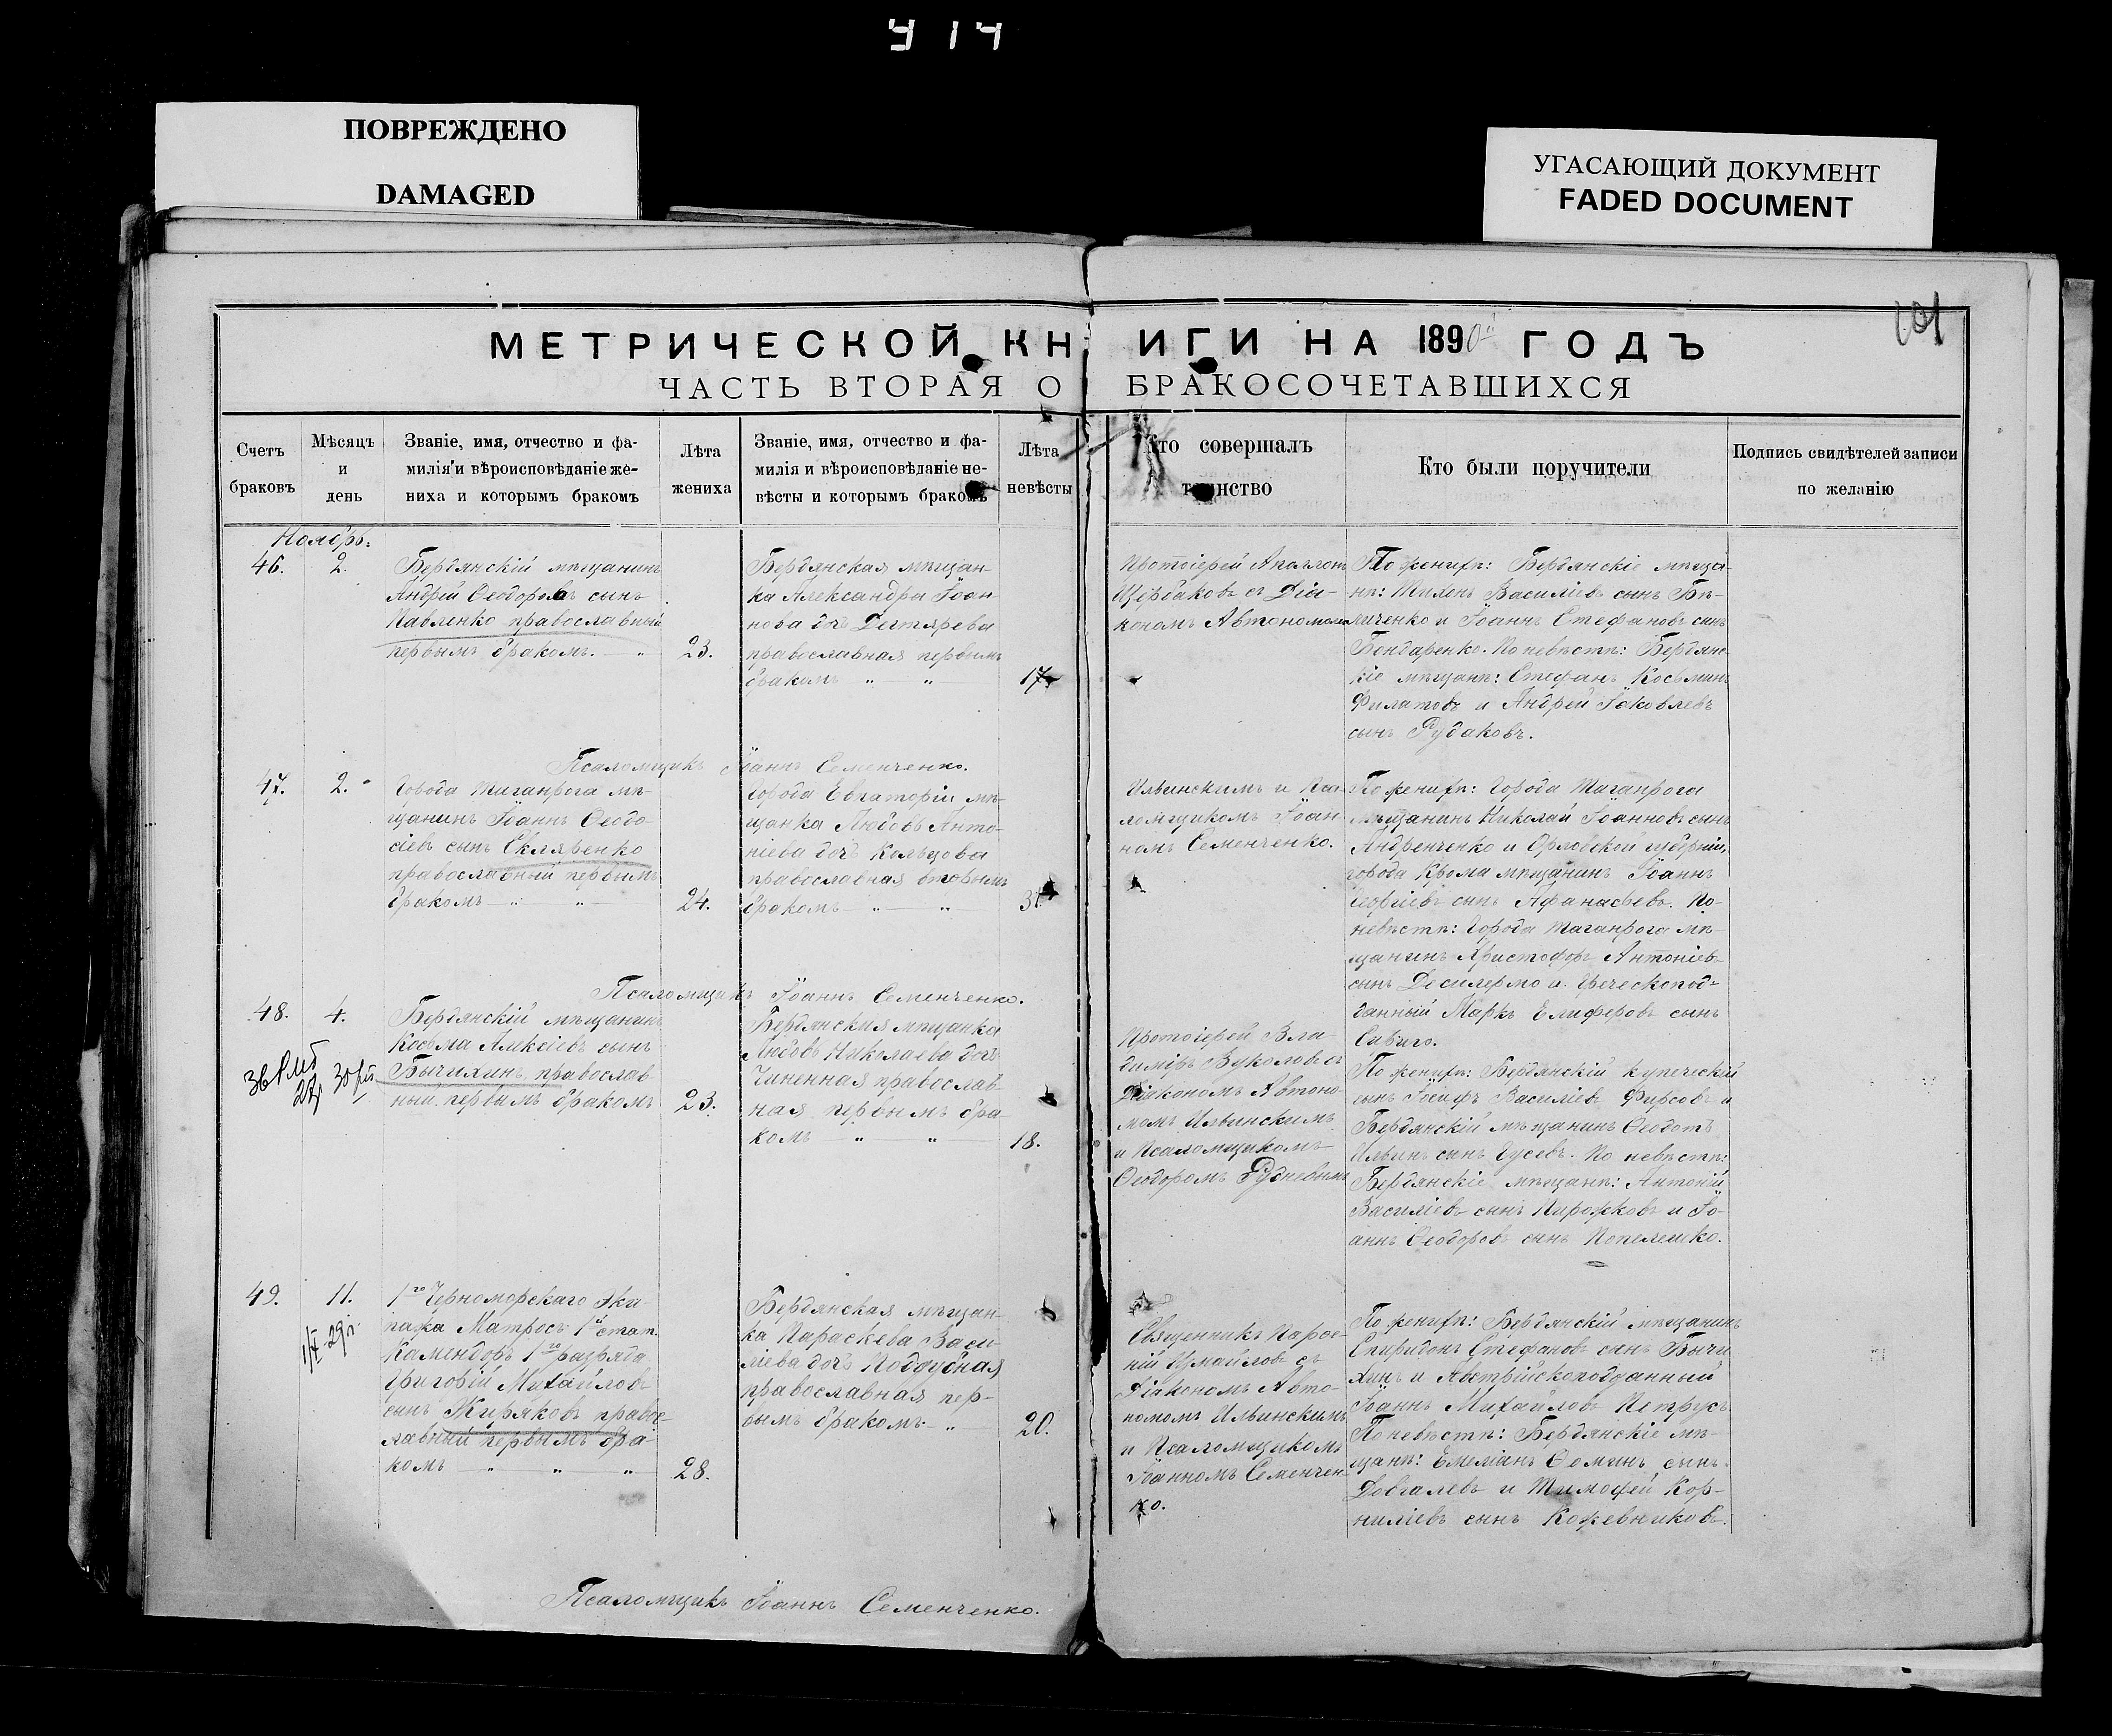 УГАСАЮЩИЙ ДОКУМЕНТ
FADED DOCUMENT
ПОВРЕЖДЕНО
DAMAGED
101
МЕТРИЧЕСКОЙ КНИГИ НА 1890й ГОДЪ
ЧАСТЬ ВТОРАЯ О БРАКОСОЧЕТАВШИХСЯ
Счетъ
браковъ
Мѣсяцъ
и
день
Званіе, имя, отчество и фа-
милія и вѣроисповѣданіе же-
ниха и которымъ бракомъ
Лѣта
жениха
Званіе, имя, отчество и фа-
милія и вѣроисповѣданіе не-
вѣсты и которымъ бракомъ
Лѣта
невѣсты
Кто совершалъ
таинство
Кто были поручители
Подпись свидѣтелей записи
по желанію
Ноябрь.
46.
2.
Бердянскій мѣщанинъ
Андрей Ѳеодоровъ сынъ
Павленко православный
первымъ бракомъ. — "
23.
Бердянская мѣщан-
ка Александра Іоан-
нова дочь Дегтярева
православная первымъ
бракомъ " — "
17.
Протоіерей Аполлонъ
Щербаковъ съ Діа-
кономъ Автономомъ
По женихѣ: Бердянскіе мѣща-
не: Василіевъ сынъ Бѣ-
личенко и Іоаннъ Стефановъ сынъ
Бондаренко. По невѣстѣ: Бердянс-
кіе мѣщане: Стефанъ Косьминъ
Филатовъ и Андрей Іаковлевъ
сынъ Рудаковъ.
Псаломщикъ Іоаннъ Семенченко.
47.
2.
Города Таганрога мѣ-
щанинъ Іоаннъ Ѳеодо-
сіевъ сынъ Скляренко
православный первымъ
бракомъ — " — "
24.
Города Евпаторіи мѣ-
щанка Любовь Анто-
ніева дочь Кольцова
православная вторымъ
бракомъ " — "
Ильинскимъ и Пса-
ломщикомъ Іоан-
номъ Семенченко.
По женихѣ: Города Таганрога
мѣщанинъ Николай Іоанновъ сынъ
Андренченко и Орловской губерніи,
города Крома мѣщанинъ Іоаннъ
Георгіевъ сынъ Афанасьевъ. По
невѣстѣ: Города Таганрога мѣ-
щанинъ Христофоръ Антоніевъ
сынъ Десилермо и Греческопод-
данный Маркъ Елиферовъ сынъ
Псаломщикъ Іоаннъ Семенченко.
48.
4.
Бердянскій мѣщанинъ
Косьма Алексіевъ сынъ
Бычихинъ православ-
ный первымъ бракомъ
23.
Бердянская мѣщанка
Любовь Николаева дочь
Чиненная православ-
ная первымъ бра-
комъ — " — "
18.
Протоіерей Вла-
димиръ Вуколовъ съ
Діакономъ Автоно-
момъ Ильинскимъ
и Псаломщикомъ
Ѳеодоромъ Рудневымъ
По женихѣ: Бердянскій купеческій
сынъ Іосифъ Василіевъ Фирсовъ и
Бердянскій мѣщанинъ Ѳеодотъ
Ильинъ сынъ Гусевъ. По невѣстѣ:
Бердянскіе мѣщане: Антоній
Василіевъ сынъ Пирожковъ и Іо-
аннъ Ѳеодоровъ сынъ Попелешко.
49.
11.
1го Черноморскаго эки-
пажа Матросъ 1й стат.
Камендоръ 1го разряда
Григорій Михайловъ
сынъ Жиряковъ правос-
лавный первымъ бра-
комъ — " — " — "
28.
Бердянская мѣщан-
ка Параскева Васи-
ліева дочь Поддубная
православная пер-
вымъ бракомъ — "
20.
Священникъ Парѳе-
ній Измайловъ съ
Діакономъ Авто-
номомъ Ильинскимъ
и Псаломщикомъ
Іоанномъ Семенчен-
ко.
По женихѣ: Бердянскій мѣщанинъ
Спиридонъ Стефановъ сынъ Бычи-
хинъ и Австрійскоподданный
Іоаннъ Михайловъ Петрусъ
По невѣстѣ: Бердянскіе мѣ-
щане: Емеліанъ Ѳоминъ сынъ
Довгалевъ и Тимофей Кор-
ниліевъ сынъ Кожевниковъ.
Псаломщикъ Іоаннъ Семенченко.